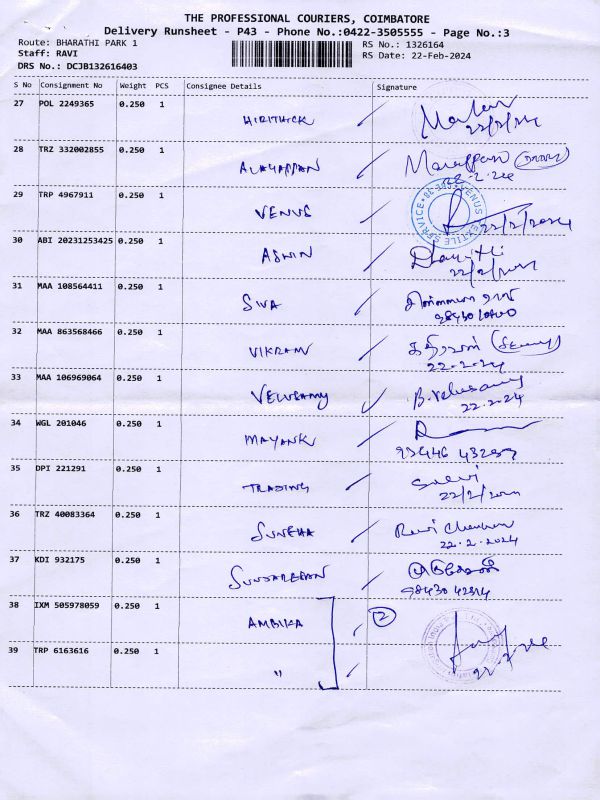 THE PROFESSIONAL COURIERS, COIMBATORE
Delivery Runsheet - P43 - Phone No.:0422-3505555 - Page No.:3
Route: BHARATHI PARK 1
Staff: RAVI
DRS No.: DCJB132616403
RS No.: 1326164
RS Date: 22-Feb-2024
S No Consignment No Weight PCS Consignee Details Signature
27 POL 2249365 0.250 1 HIRITHICK
22/2/24
28 TRZ 332002855 0.250 1 ALAGAPPAN
22-2-24
29 TRP 4967911 0.250 1 VENUS 22/2/2024
30 ABI 20231253425 0.250 1 ASWIN
31 MAA 108564411 0.250 1 SIVA
32 MAA 863568466 0.250 1 VIKRAM
22-2-24
33 MAA 106969064 0.250 1 VELUSAMY B. Velusamy
22.2.24
34 WGL 201046 0.250 1 MAYANK
35 DPI 221291 0.250 1 TRADING Selvi
36 TRZ 40083364 0.250 1 SUNEHA
22.2.2024
37 KDI 932175 0.250 1 SUNDARESAN
38 IXM 505978059 0.250 1 AMBIKA 2
39 TRP 6163616 0.250 1 "